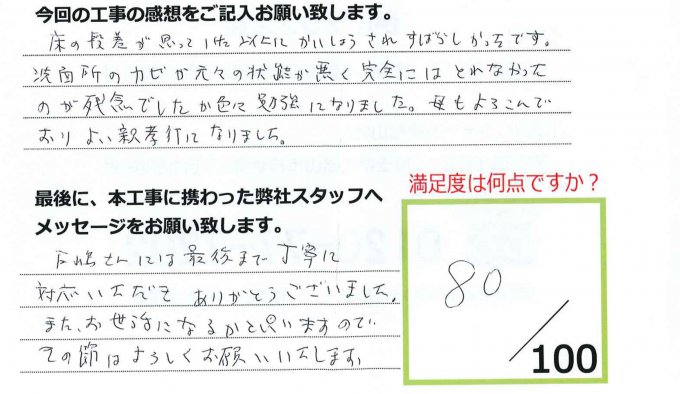 今回の工事の感想をご記入お願い致します。
床の段差が思っていた以上にかいしょうされすばらしかったです。
洗面所のカビが元々の状態が悪く完全にはとれなかった
のが残念でしたが色々勉強になりました。母もよろこんで
おりよい親孝行になりました。
最後に、本工事に携わった弊社スタッフへ
メッセージをお願い致します。
満足度は何点ですか？
さんには最後まで丁寧に
対応いただき ありがとうございました。
また、お世話になるかと思いますので
その節はよろしくお願いいたします。
80
100